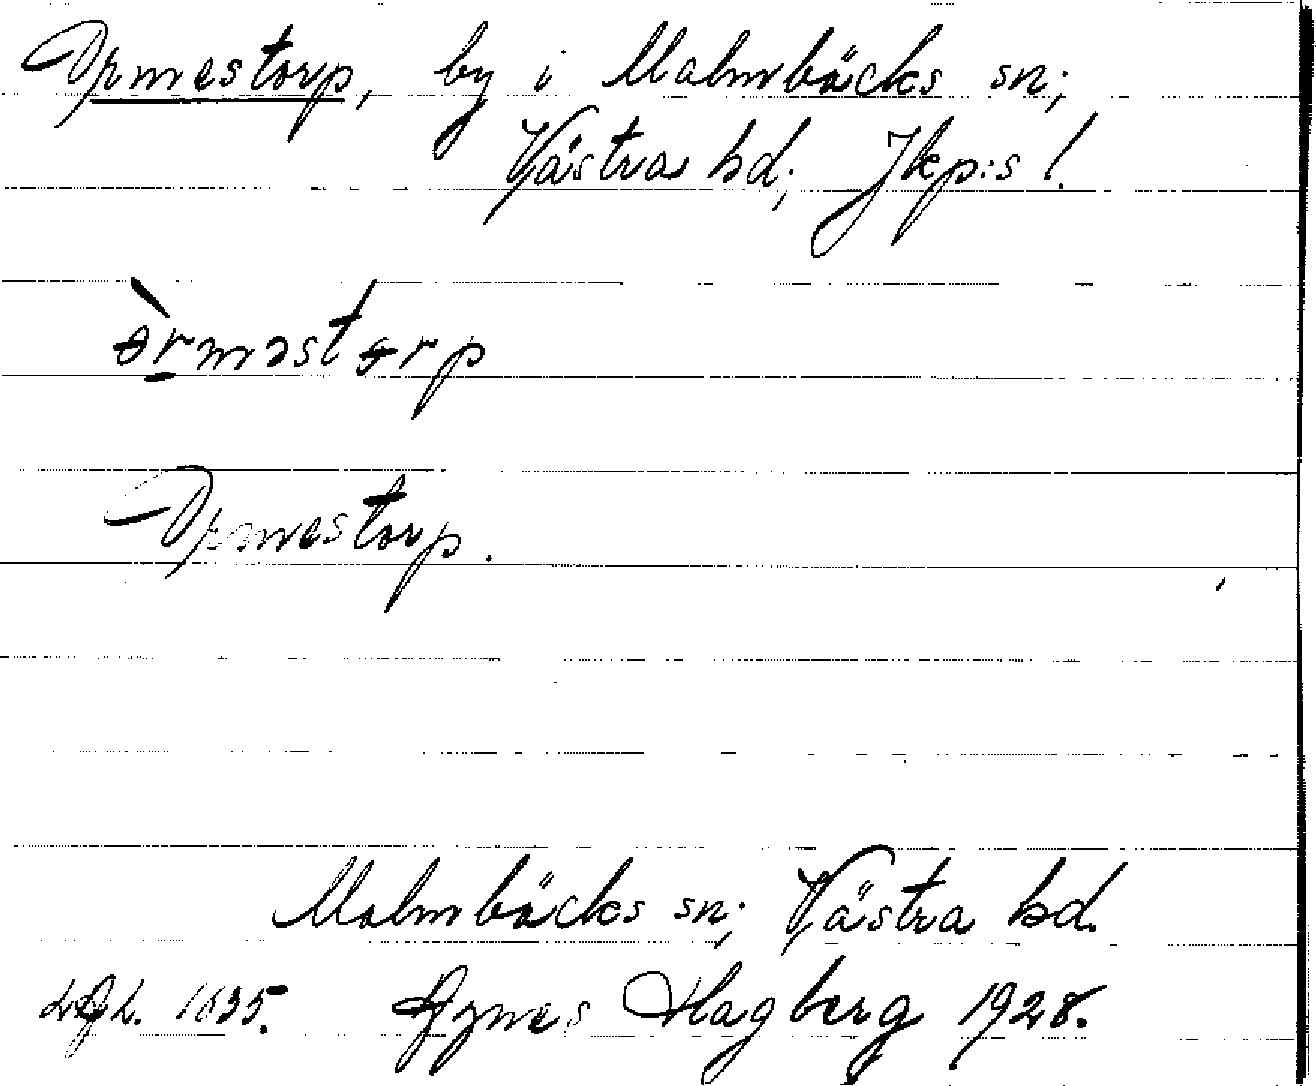 Ormestorp, by i Malmbäcks sn;
Västra hd; Jkp:s l.
ɵ̀rməstɵrp
Ormestorp.
Malmbäcks sn; Västra hd.
1635. Agnes Hagberg 1928.